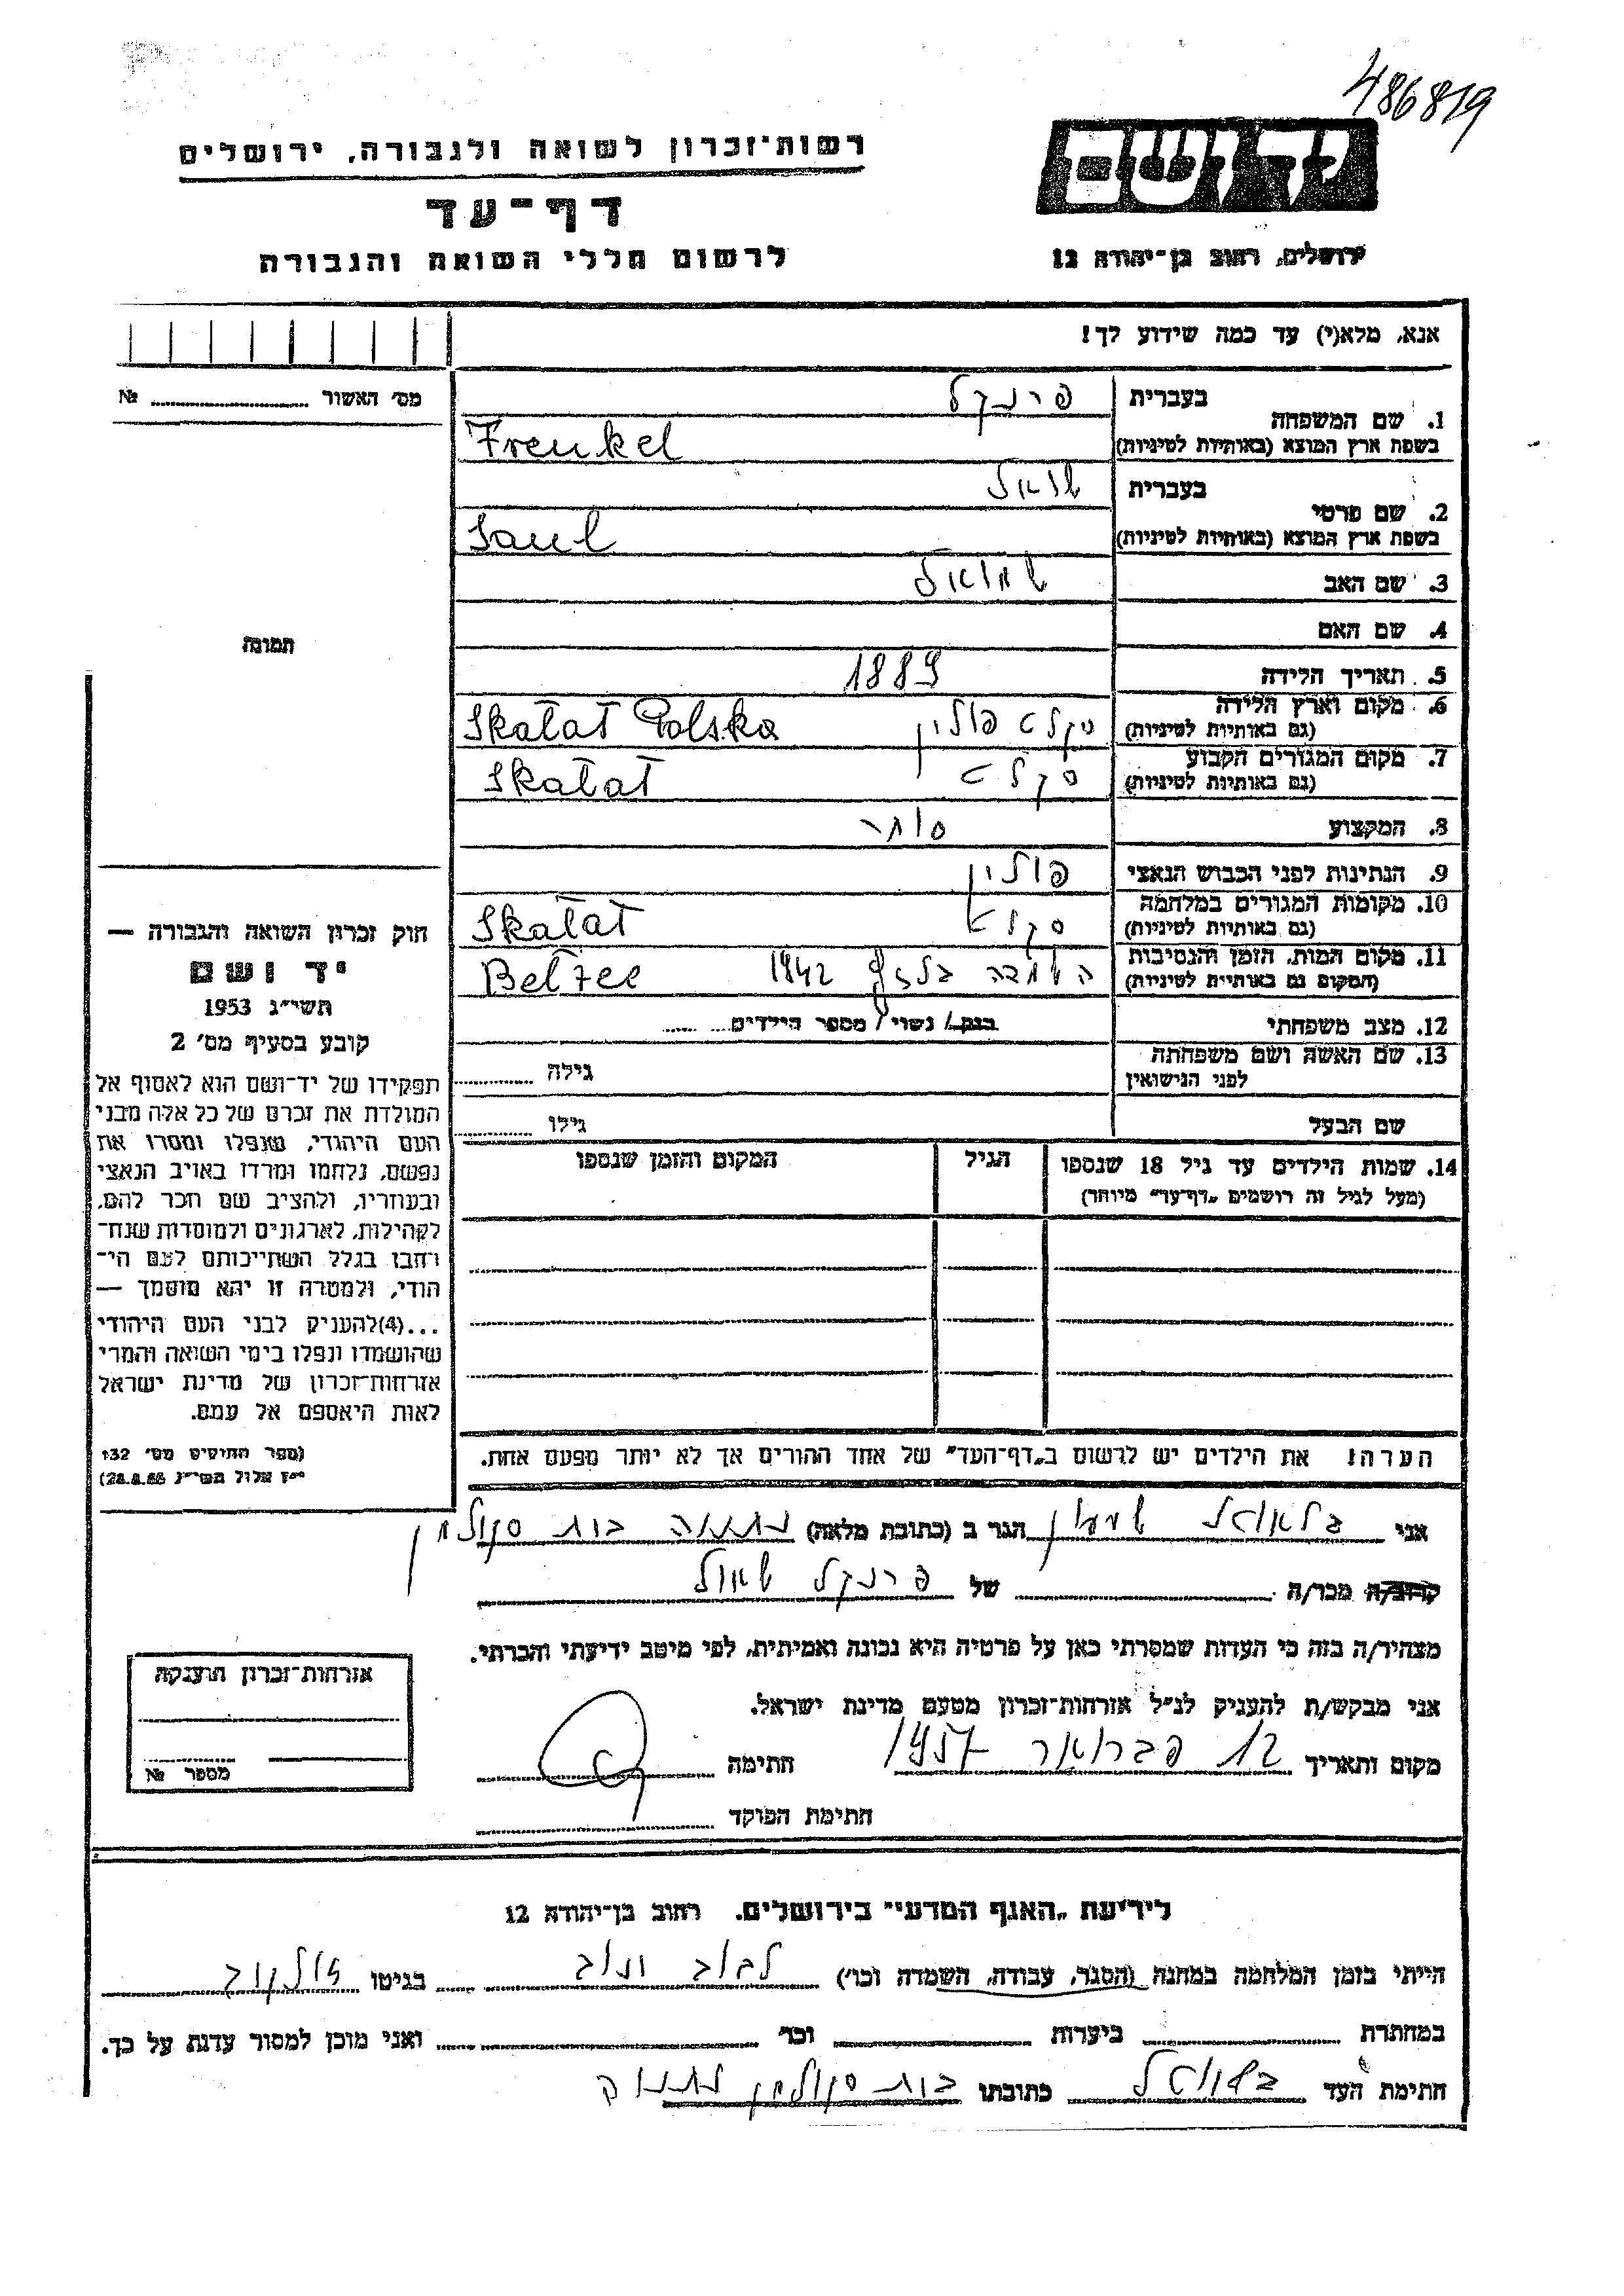 486819
רשות־זכרון לשואה ולגבורה, ירושלים
יד ושם
דף־עד
לרשום חללי השואה והגבורה
ירושלים, רחוב בן־יהודה 12
אנא, מלא(י) עד כמה שידוע לך!
מס' האשור № ........
1. שם המשפחה בעברית פרנקל
בשפת ארץ המוצא (באותיות לטיניות) Frenkel
2. שם פרטי בעברית שואל
בשפת ארץ המוצא (באותיות לטיניות) Saul
3. שם האב שמואל
4. שם האם
תמונה
5. תאריך הלידה 1889
6. מקום וארץ הלידה (גם באותיות לטיניות) סקלט פולין Skałat Polska
7. מקום המגורים הקבוע (גם באותיות לטיניות) סקלט Skałat
8. המקצוע סוחר
9. הנתינות לפני הכבוש הנאצי פולין
10. מקומות המגורים במלחמה (גם באותיות לטיניות) סקלט Skałat
11. מקום המות, הזמן והנסיבות (המקום גם באותיות לטיניות) השמדה בלזץ 1942 Bełzec
12. מצב משפחתי רווק/ נשוי/ מספר הילדים
13. שם האשה ושם משפחתה לפני הנישואין גילה
שם הבעל גילו
14. שמות הילדים עד גיל 18 שנספו הגיל המקום והזמן שנספו
(מעל לגיל זה רושמים „דף־עד” מיוחד)
הערה: את הילדים יש לרשום ב„דף־העד” של אחד ההורים אך לא יותר מפעם אחת.
חוק זכרון השואה והגבורה —
יד ושם
תשי״ג 1953
קובע בסעיף מס' 2
תפקידו של יד־ושם הוא לאסוף אל
המולדת את זכרם של כל אלה מבני
העם היהודי, שנפלו ומסרו את
נפשם, נלחמו ומרדו באויב הנאצי
ובעוזריו, ולהציב שם וזכר להם,
לקהילות, לארגונים ולמוסדות שנח־
רבו בגלל השתייכותם לעם הי־
הודי, ולמטרה זו יהא מוסמך —
...(4)להעניק לבני העם היהודי
שהושמדו ונפלו בימי השואה והמרי
אזרחות־זכרון של מדינת ישראל
לאות היאספם אל עמם.
(ספר החוקים מס' 132
י״ז אלול תשי״ג
אני שמעון הגר ב (כתובת מלאה) נתניה בית
קרוב/ה מכר/ה של פרנקל שאול
מצהיר/ה בזה כי העדות שמסרתי כאן על פרטיה היא נכונה ואמיתית, לפי מיטב ידיעתי והכרתי.
אני מבקש/ת להעניק לנ״ל אזרחות־זכרון מטעם מדינת ישראל.
מקום ותאריך 12 פברואר 1957 חתימה
חתימת הפוקד
אזרחות־זכרון הוענקה
מספר №
לידיעת „האגף המדעי” בירושלים, רחוב בן־יהודה 12
הייתי בזמן המלחמה במחנה (הסגר, עבודה, השמדה וכו') לבוב ינוב בגיטו זולקוב
במחתרת ביערות וכו' ואני מוכן למסור עדות על כך.
חתימת העד כתובתו בית נתניה